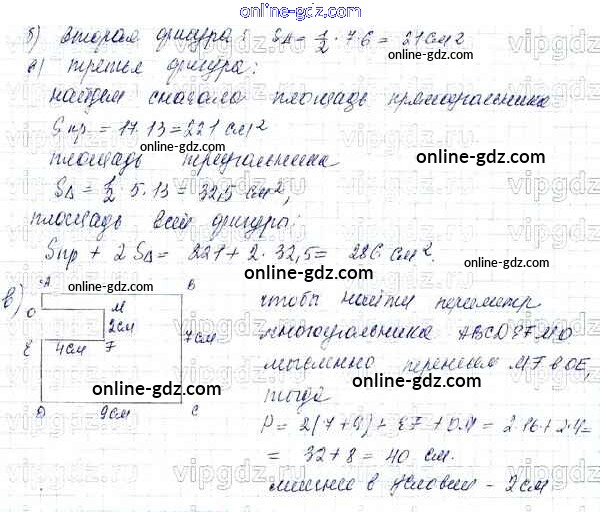 online-gdz.com
б) вторая фигура: S△ = 1/2 · 7·6 = 21 см²
в) третья фигура:
найдем сначала площадь прямоугольника
Sпр = 17·13 = 221 см²
площадь треугольника
S△ = 1/2 · 5·13 = 32,5 см²,
площадь всей фигуры:
Sпр + 2S△ = 221 + 2·32,5 = 286 см².
в)
A B
O M
2см
7см
E 4см F
D 9см C
чтобы найти периметр
многоугольника ABCDEFMO
мысленно перенесем MF в OE,
тогда
P = 2(7+9) + EF + OM = 2·16 + 2·4 =
= 32 + 8 = 40 см.
лишнее в условии - 2см
online-gdz.com
online-gdz.com
online-gdz.com
online-gdz.com
online-gdz.com
online-gdz.com
online-gdz.com
online-gdz.com
vipgdz.com